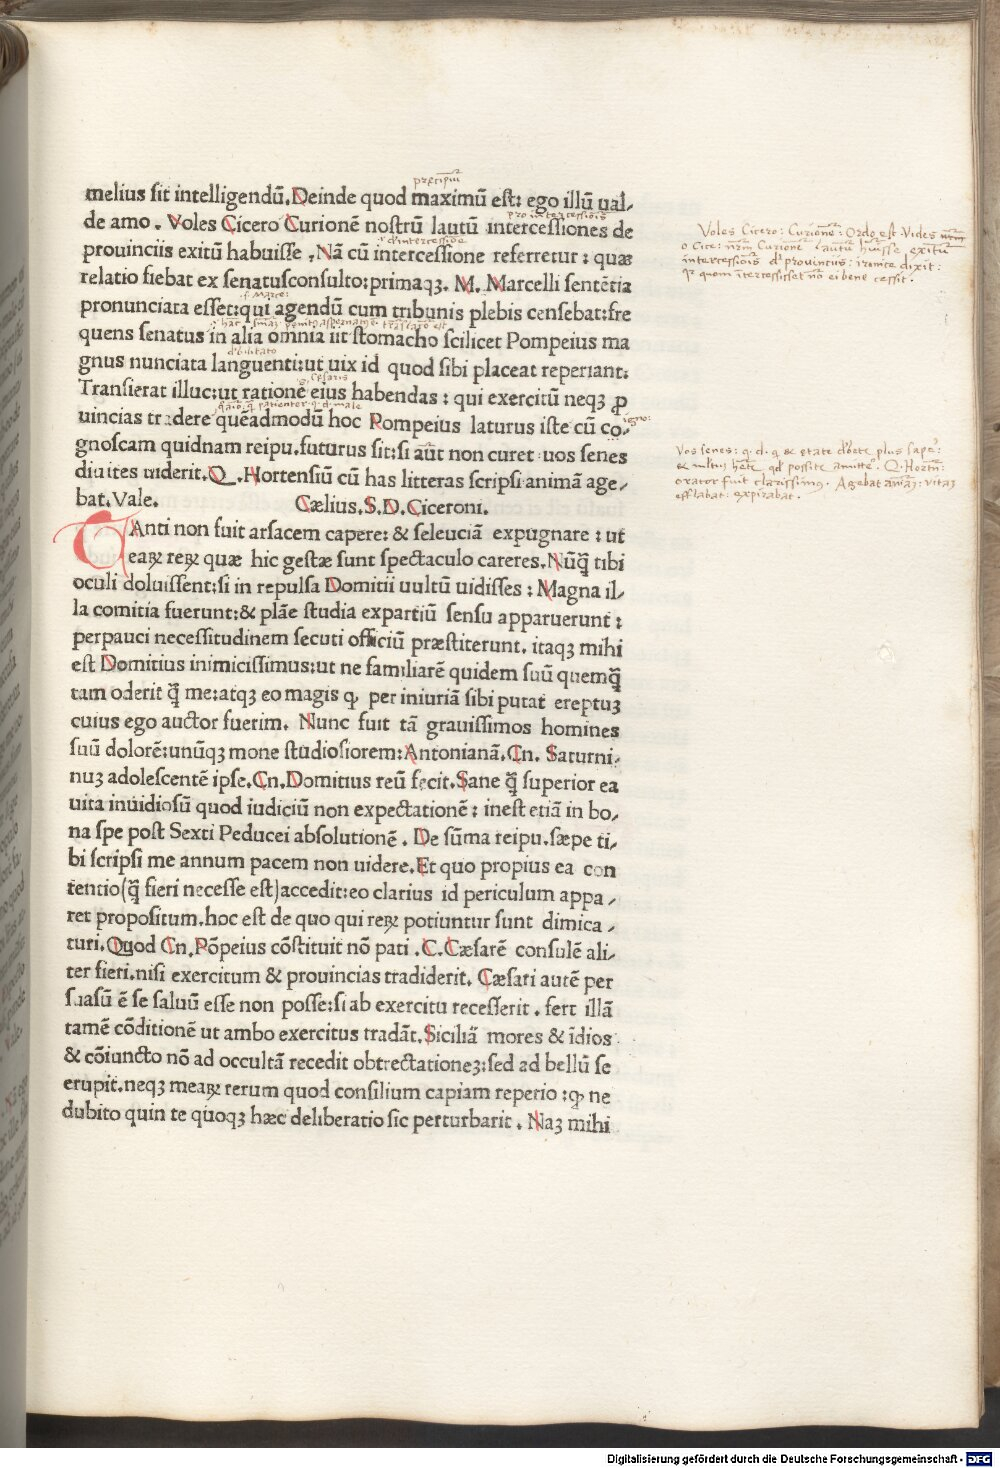 melius sit intelligendū. Deinde quod maximū est: ego illū ual⸗
de amo. Voles Cicero Curionē nostrū lautū intercessiones de
prouinciis exitū habuisse. Nā cū intercessione referretur: quæ
relatio fiebat ex senatusconsulto: primaqꝫ. M. Marcelli sentētia
pronunciata esset: qui agendū cum tribunis plebis censebat: fre
quens senatus in alia omnia iit stomacho scilicet Pompeius ma
gnus nunciata languenti: ut uix id quod sibi placeat reperiant:
Transierat illuc: ut rationē eius habendas: qui exercitū neqꝫ ꝓ
uincias tradere quēadmodū hoc Pompeius laturus iste cū co⸗
gnoscam quidnam reipu. futurus sit: si aūt non curet uos senes
diuites uiderit. Q. Hortensiū cū has litteras scripsi animā age⸗
bat. Vale. Cælius. S. D. Ciceroni.
TAnti non fuit arsacem capere: & seleuciā expugnare: ut
eaꝝ reꝝ quæ hic gestæ sunt spectaculo careres. Nūq̄ tibi
oculi doluissent: si in repulsa Domitii uultū uidisses: Magna il⸗
la comitia fuerunt: & plāe studia expartiū sensu apparuerunt:
perpauci necessitudinem secuti officiū præstiterunt. itaqꝫ mihi
est Domitius inimicissimus: ut ne familiarē quidem suū quemq̄
tam oderit q̄ me: atqꝫ eo magis ꝙ per iniuriā sibi putat ereptuꝫ
cuius ego auctor fuerim. Nunc fuit tā grauissimos homines
suū dolorē: unūqꝫ mone studiosiorem: Antonianā. Cn. Saturni⸗
nuꝫ adolescentē ipse. Cn. Domitius reū fecit. Sane q̄ superior ea
uita inuidiosū quod iudiciū non expectationē: inest etiā in bo⸗
na spe post Sexti Peducei absolutionē. De sūma reipu. sæpe ti⸗
bi scripsi me annum pacem non uidere. Et quo propius ea con
tentio (q̄ fieri necesse est) accedit: eo clarius id periculum appa⸗
ret propositum. hoc est de quo qui reꝝ potiuntur sunt dimica⸗
turi. Quod Cn. Pōpeius cōstituit nō pati. C. Cæsarē consulē ali⸗
ter fieri. nisi exercitum & prouincias tradiderit. Cæsari autē per
suasū ē se saluū esse non posse: si ab exercitu recesserit. fert illā
tamē cōditionē ut ambo exercitus tradāt. Siciliā mores & īdios
& cōiuncto nō ad occultā recedit obtrectationeꝫ: sed ad bellū se
erupit. neqꝫ meaꝝ rerum quod consilium capiam reperio: ꝙ ne
dubito quin te quoqꝫ hæc deliberatio sic perturbarit. Naꝫ mihi
Voles Cicero: Curionē: Ordo est Vides
o Cice: nr̄m Curionē
intercessiōis
Vos senes:
Q. Horten:
orator fuit clarissimus. Agebat
efflabat: expirabat.
Digitalisierung gefördert durch die Deutsche Forschungsgemeinschaft - DFG